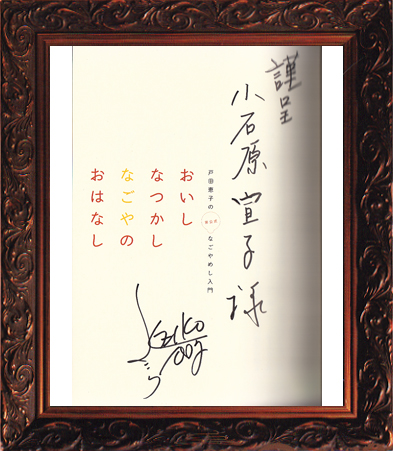 謹呈
小石原 宣子様
戸田恵子の
なごやめし入門
おいし
なつかし
なごやの
おはなし
Keiko